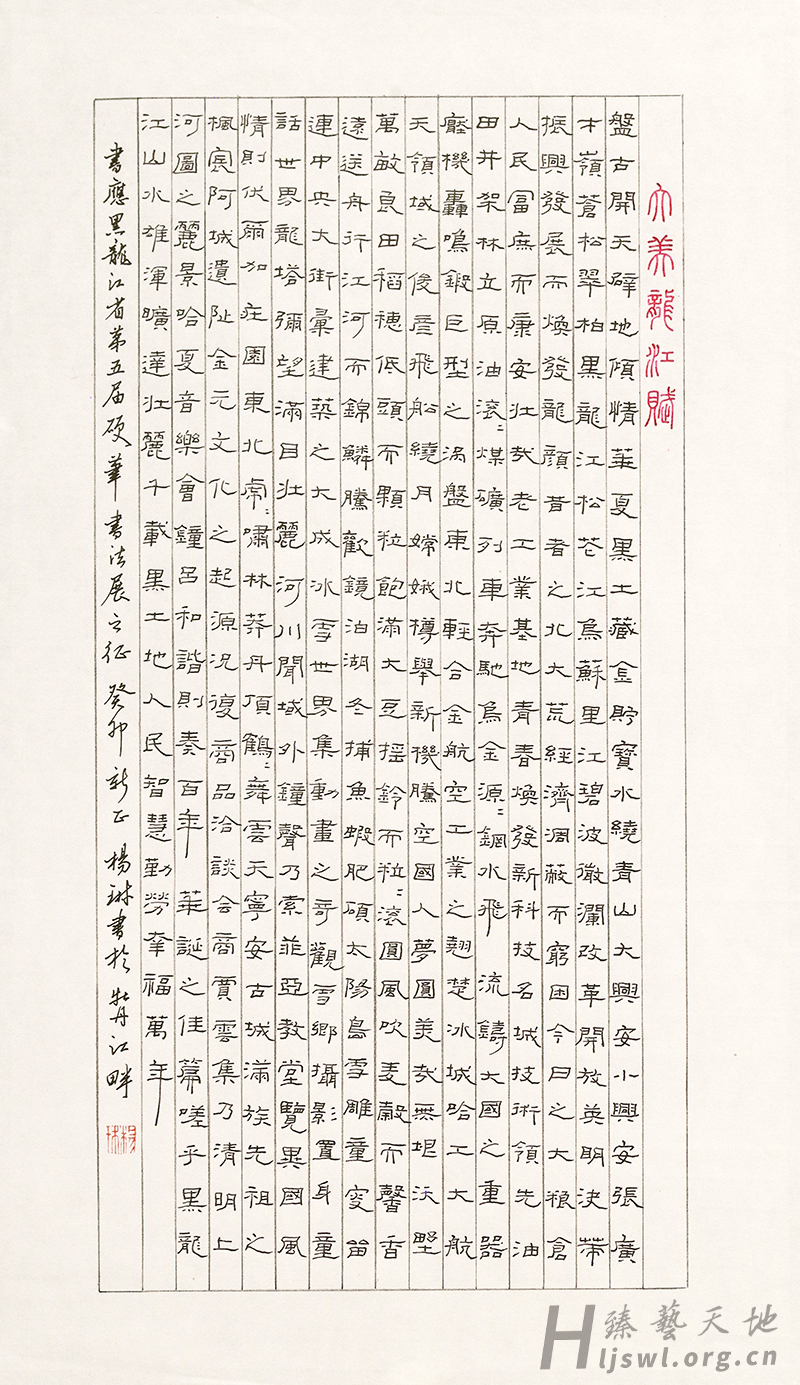 大美龍江賦
盤古開天闢地傾情華夏黑土藏金貯寶水繞青山大興安小興安張廣
才嶺蒼松翠柏黑龍江松花江烏蘇里江碧波激瀾改革開放英明決策
振興發展而煥發龍顏昔者之北大荒經濟凋蔽而窮困今日之大粮倉
人民富庶而康安壯哉老工業基地青春煥發新科技名城技術領先油
田井架林立原油滾:煤礦列車奔馳烏金源:鋼水飛流鑄大國之重器
廳機轟鳴鍛巨型之渦盤東北輕合金航空工業之翹楚冰城哈工大航
天領域之俊彥飛船繞月嫦娥樽舉新機騰空國人夢圓美哉無垠沃野
萬畝良田稻穗低頭而顆粒飽滿大豆摇鈴而粒:滾圓風吹麦穀而馨香
遠送舟行江河而錦鱗騰歡鏡泊湖冬捕魚蝦肥碩太陽島雪雕童窔笛
連中央大街彙建築之大成冰雪世界集動畫之奇觀雪鄉攝影置身童
話世界龍塔彌望滿目壯麗河川聞域外鐘聲乃索菲亞教堂覽異國風
情則伏爾加莊園東北虎:嘯林莽丹頂鶴:舞雲天寧安古城滿族先祖之
楓宸阿城遺址金元文化之起源況復商品洽談会商賈雲集乃清明上
河圖之麗景哈夏音樂會鐘呂和諧則奏百年華誕之佳篇嗟乎黑龍
江山水雄渾曠達壯麗千載黑土地人民智慧勤勞幸福萬年
書應黑龍江省第五届硬筆書法展之征 癸卯新正楊琳書於牡丹江畔
楊琳
臻藝天地
Hljswl.org.cn